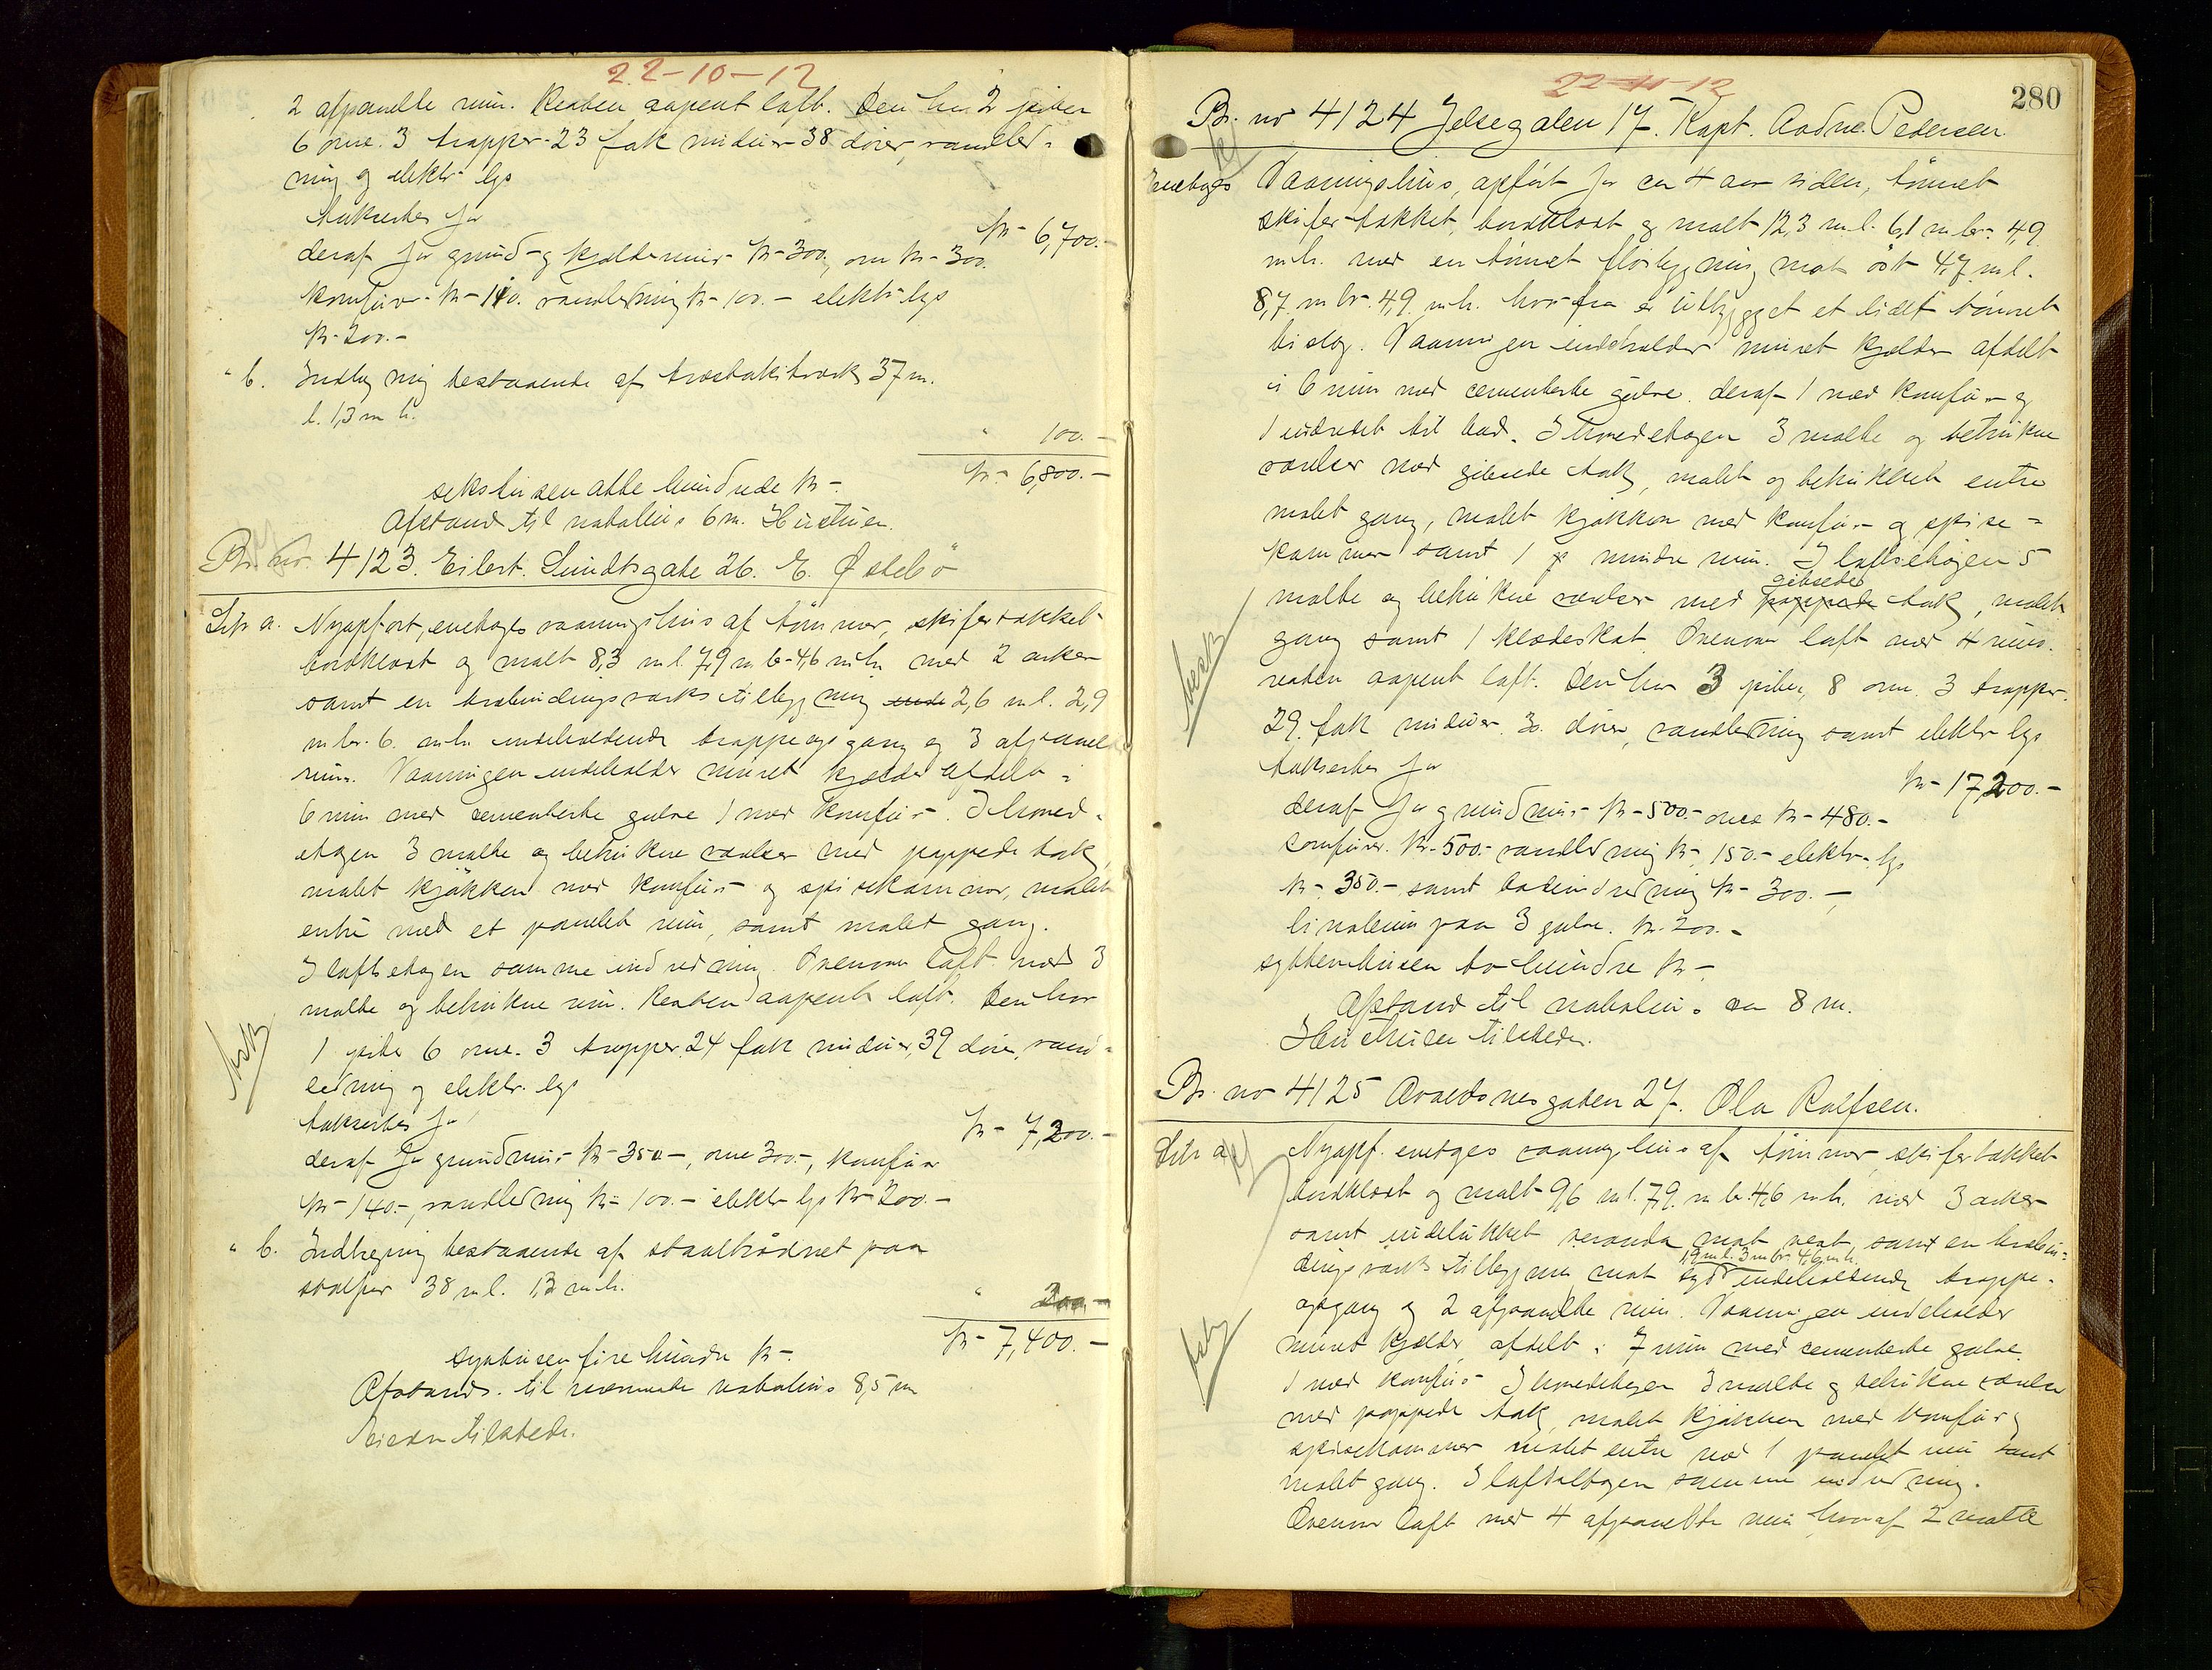 22-10-12
2 afpanelte rum. Resten aapent loft. Den har 2 piber
6 ovne. 3 trapper. 23 fak vinduer 38 dører, vandled=
ning og elektr. lys
takseres for
kr. 6,700.-
deraf for grund- og kjældermur kr. 300, ovne kr. 300.
komfur kr. 110. vandledning kr. 100.- elektr. lys
kr. 200.-
" b. Indhegning bestaaende af træstakitværk 37 m.
l. 1,3 m h.
" 100.-
kr. 6,800.-
sekstusen otte hundrede kr.
Afstand til nabohus 6 m. Hustruen.
Br. no. 4123. Eilert Sundtsgate 26. E. Østebø
Litr a. Nyopført, enetages vaaningshus af tømmer, skifertækket
bordklædt og malt 8,3 m l. 7,9 m br. 4,6 m h. med 2 arker
samt en træbindingsværks tilbygning 2,6 m l. 2,9
m br. 6. m h. indeholdende trappeopgang og 3 afpanelte
rum. Vaaningen indeholder muret kjælder afdelt i
6 rum med cementerte gulve 1 med komfur. I 1ste
etagen 3 malte og betrukne værelser med pappede tak,
malet kjøkken med komfur og spisekammer, malet
entre med et panelet rum, samt malet gang.
I loftsetagen samme indredning. Ovenover loft med 3
malte og betrukne rum. Resten aapent loft. Den har
1 pibe 6 ovne. 3 trapper 24 fak vinduer, 39 døre, vand=
ledning og elektr. lys
takseres for
kr. 7,200.-
deraf for grundmur kr. 350.-, ovne 300.-, komfur
kr. 140.-, vandledning kr. 100.- elektr. lys kr. 200.-
" b. Indhegning bestaaende af staaltraadnet paa
stolper 38 m l. 1,3 m h.
" 200.-
kr. 7,400.-
syvtusen fire hundre kr.
Afstand til nærmeste nabohus 8,5 m
Eieren tilstede.
22-10-12
280
Br. no 4124 Jelsegaten 17. Kapt. Aadne Pedersen
Enetages Vaaningshus, opført for ca 4 aar siden, tømret
skifertækket, bordklædt og malt 12,3 m l. 6,1 m br. 4,9
m h. med en tømret fløibygning mot øst 4,7 m l.
8,7 m br. 4,9 m h. hvorfra er utbygget et lidet tømret
bislag. Vaaningen indeholder muret kjælder afdelt
i 6 rum med cementerte gulve. deraf 1 med komfur og
1 indredet til bad. I 1ste etagen 3 malte og betrukne
værelser med gibsede tak, malet og betrukket entre
malet gang, malet kjøkken med komfur og spise=
kammer samt 1 mindre rum. I loftsetagen 5
malte og betrukne værelser med pappede gibsede tak, malet
gang samt 1 klædeskot. Ovenover loft med 4 rum.
resten aapent loft. Den har 3 piber, 8 ovne. 3 trapper
29. fak vinduer. 30. dører, vandledning samt elektr lys
takseres for
kr. 17,200.-
deraf for grundmur kr. 500.- ovne kr. 480.-
komfurer kr. 500.- vandledning kr. 150.- elektr. lys
kr. 350.- samt badeindredning kr. 300.-,
linoleum paa 3 gulve. kr. 200.-
syttentusen to hundre kr.
Afstand til nabohus ca 8 m.
Hustruen tilstede.
Br. no 4125 Avaldsnesgaten 27. Ola Rolfsen.
Litr a. Nyopf. enetages vaaningshus af tømmer, skifertækket
bordklædt og malt 9,6 m l. 7,9 m br. 4,6 m h. med 3 arker
samt indelukket veranda mot vest samt en træbin=
dingsværks tilbygning mot syd 1,9 m l. 3 m br. 4,6 m h. indeholdende trappe-
opgang og 2 afpanelte rum. Vaaningen indeholder
muret kjælder afdelt i 7 rum med cementerte gulve
1 med komfur. I 1ste etagen 3 malte og betrukne værelser
med pappede tak, malet kjøkken med komfur og
spisekammer malet entre med 1 panelet rum samt
malet gang. I loftsetagen samme indredning.
Ovenover loft med 4 afpanelte rum hvoraf 2 malte